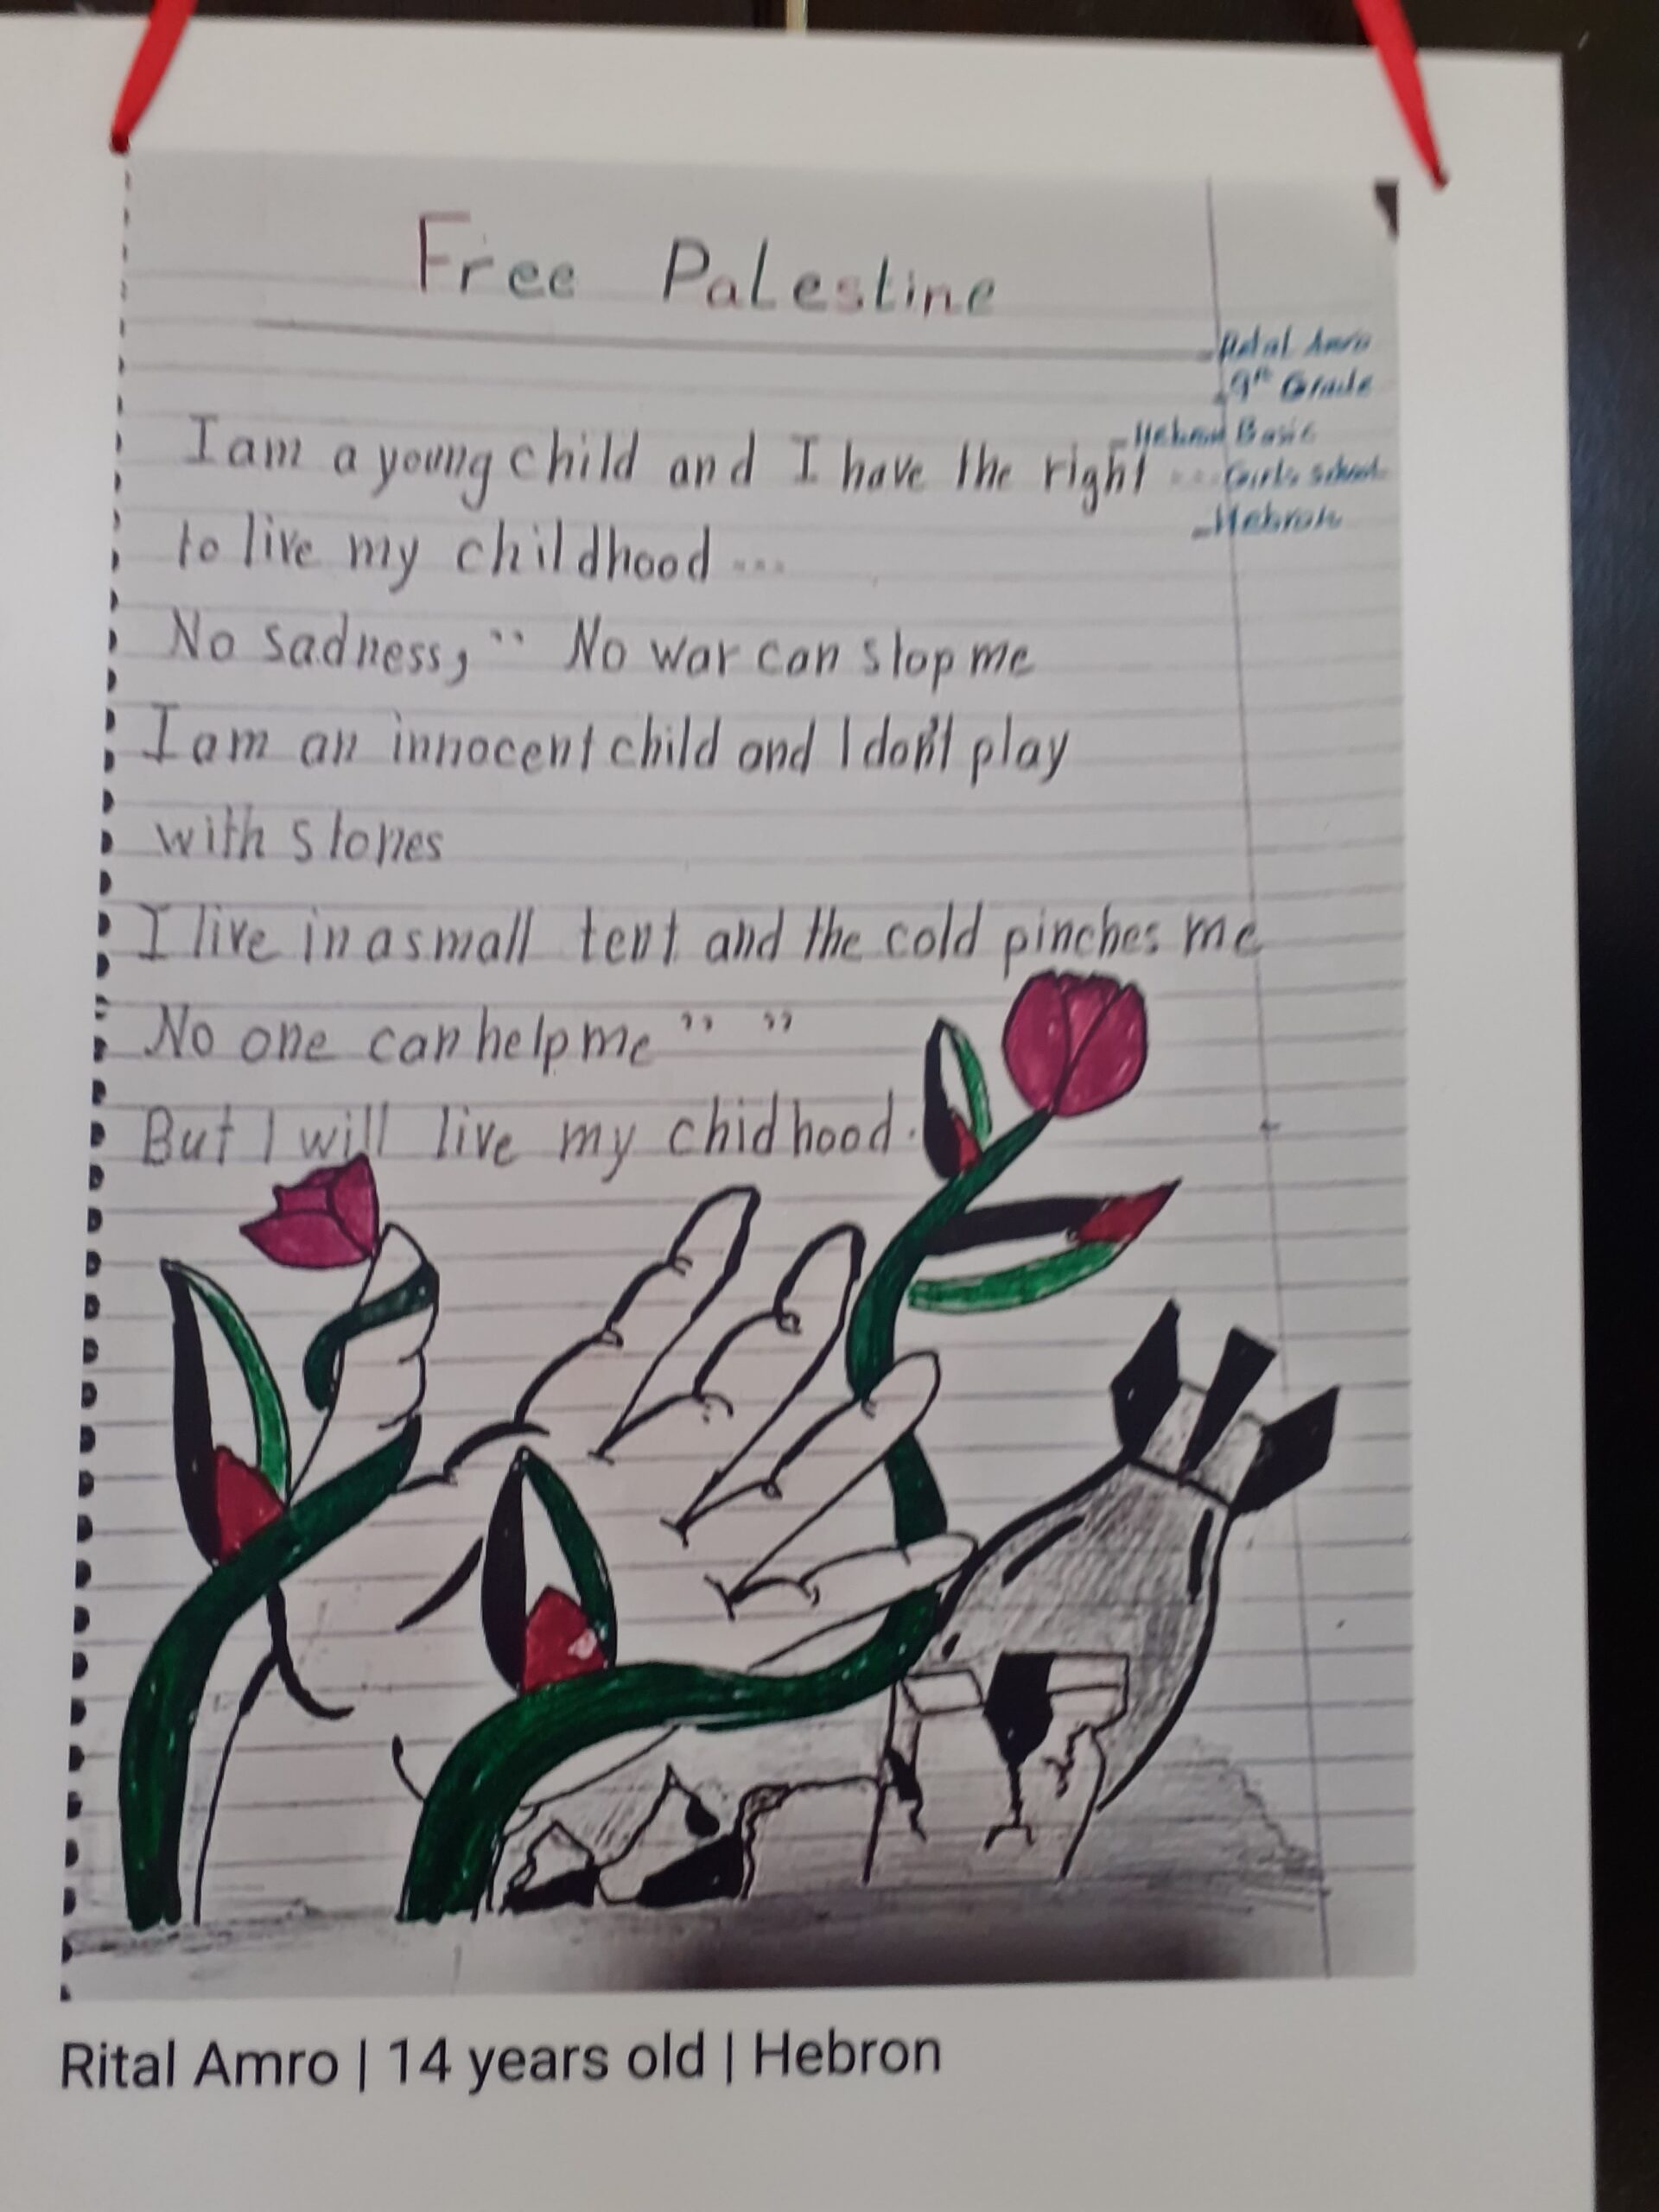 Free Palestine
Retal Amro
9th Grade
Hebron Basic
Girls School
Hebron
I am a young child and I have the right ...
to live my childhood ...
No sadness, .. No war can stop me
I am an innocent child and I don't play
with stones
I live in a small tent and the cold pinches me
No one can help me " "
But I will live my chidhood.
Rital Amro | 14 years old | Hebron